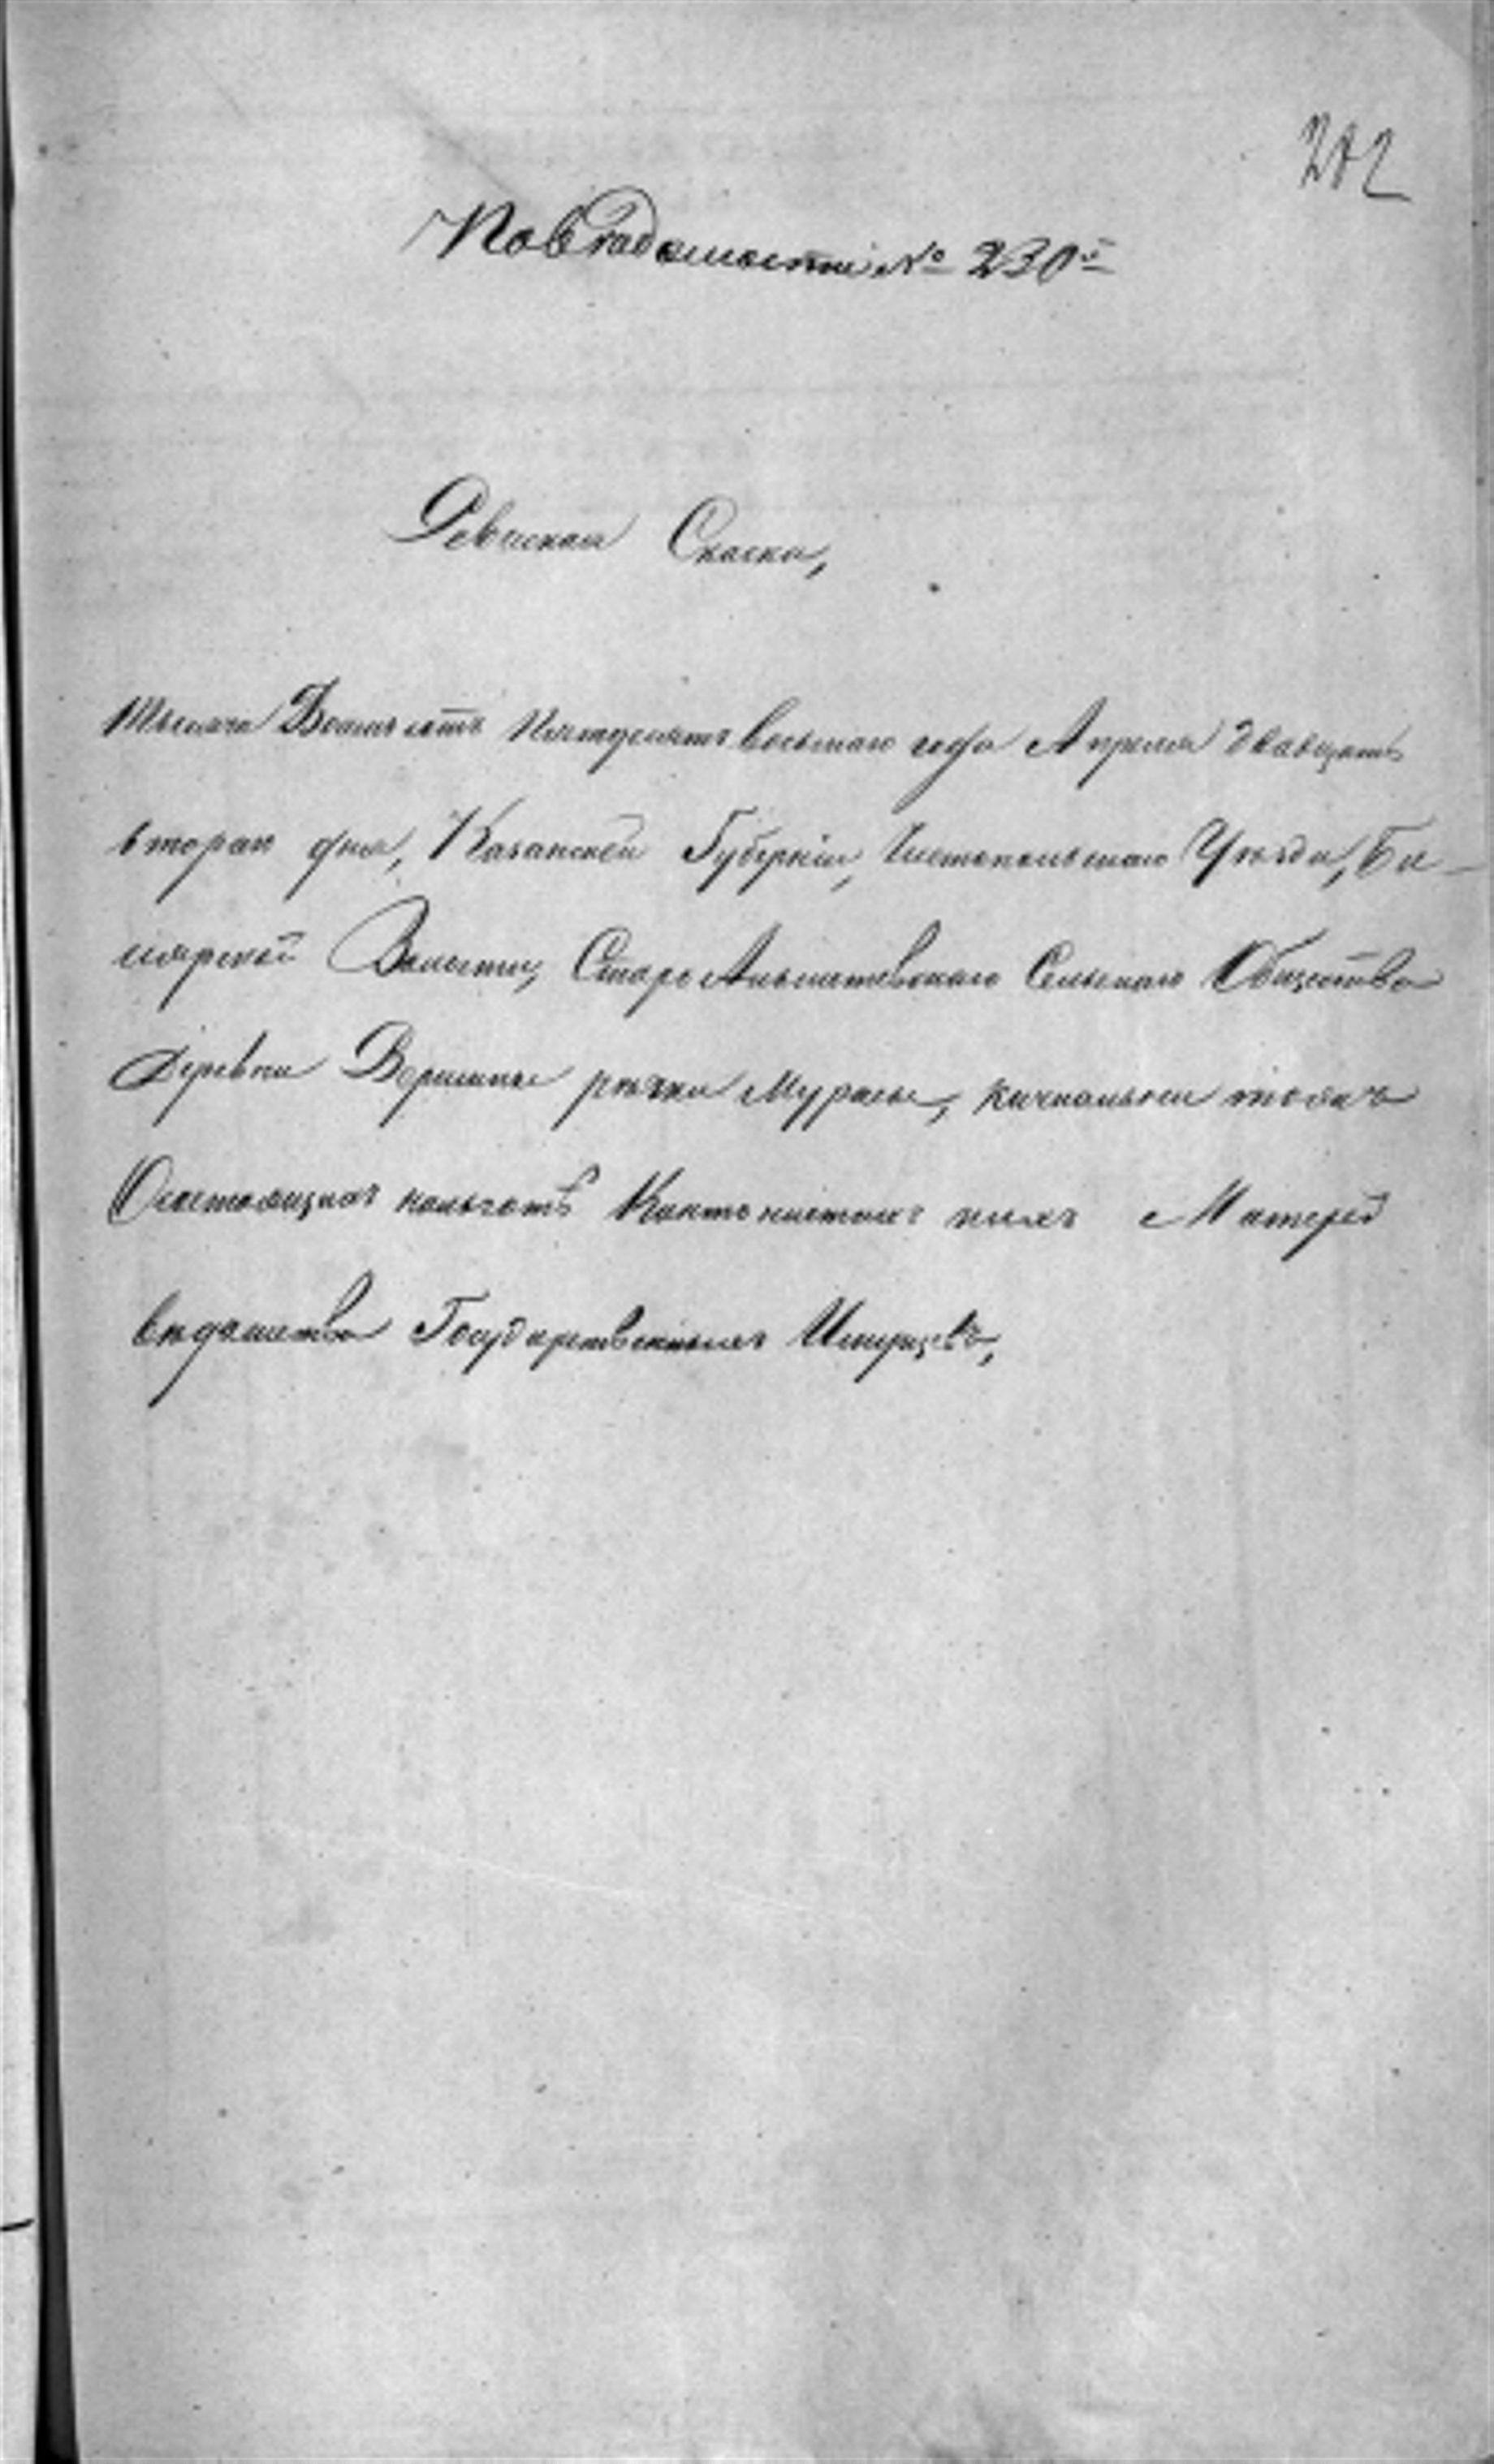 202
По ведомости № 230й
Ревиская Скаска,
Тысяча Восемьсотъ Пятдесятъ восьмаго года Апреля двадцать
втораго дня, Казанской Губерніи, Чистопольскаго Уѣзда, Би-
лярской Волости, Старо Сельскаго Общества
Деревни рѣчки Мурасы,
состоящихъ Кантонистахъ и ихъ Матерей
вѣдомства Государственныхъ Имуществъ,